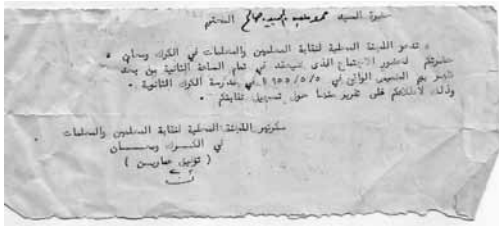 حضرة السيد محمد عبد المجيد صالح المحترم
" تدعو اللجنة المحلية لنقابة المعلمين والمعلمات في الكرك ومعان "
حضرتكم لحضور الاجتماع الذي سيعقد في تمام الساعة الثانية من بعد
ظهر يوم الخميس الواقع في ٥/٥/ ١٩٥٥ في مدرسة الكرك الثانوية .
وذلك لاطلاعكم على تقرير عنا حول تسجيل نقابتكم .
سكرتير اللجنة المحلية لنقابة المعلمين والمعلمات
في الكرك ومعان
( توفيق عمارين )